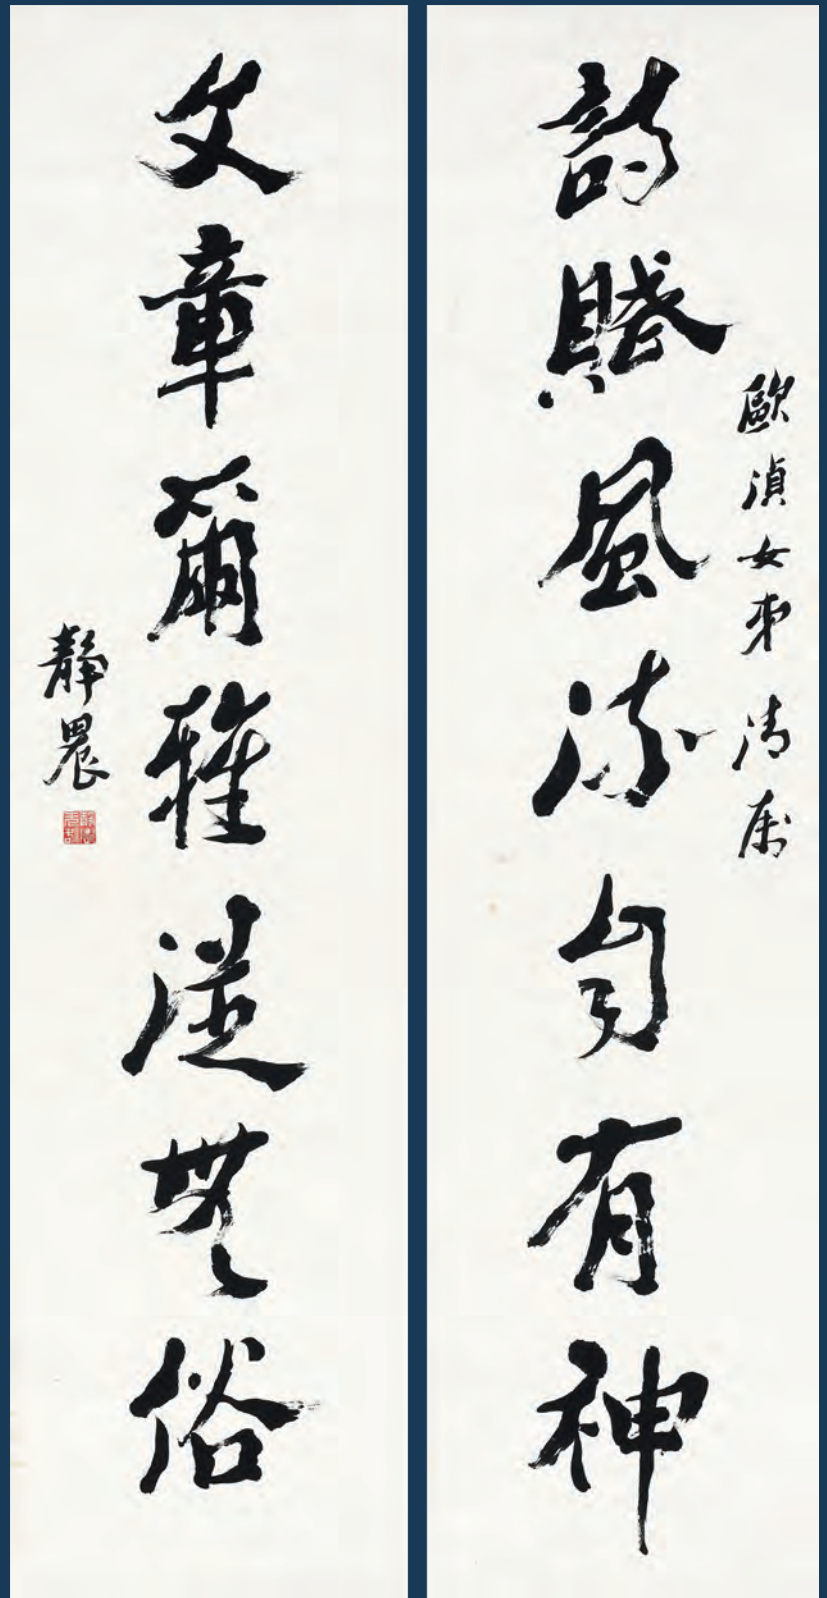 詩賦風流自有神
歐湞女弟清屬
文章爾雅從無俗
靜農